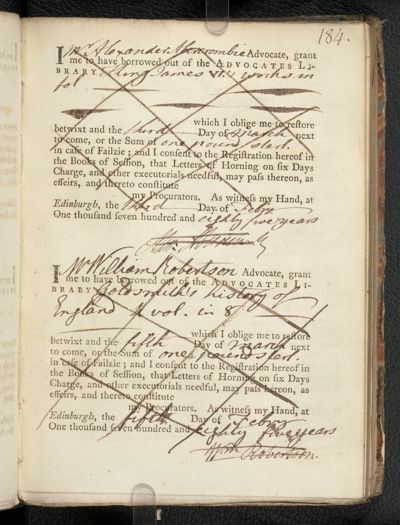 184.
I Mr Alexander Abercrombie Advocate, grant
me to have borrowed out of the ADVOCATES LI-
BRARY King James works in
fol
which I oblige me to restore
betwixt and the third Day of March next
to come, or the Sum of one pound starl.
in case of Failzie; and I consent to the Registration hereof in
the Books of Session, that Letters of Horning on six Days
Charge, and other executorials needful, may pass thereon, as
effeirs, and thereto constitute
my Procurators. As witness my Hand, at
Edinburgh, the third Day of Febry
One thousand seven hundred and eighty five years
I Mr William Robertson Advocate, grant
me to have borrowed out of the ADVOCATES LI-
BRARY Goldsmith's history of
England 4 vol. in 8
which I oblige me to restore
betwixt and the fifth Day of March next
to come, or the Sum of one pound starl.
in case of Failzie; and I consent to the Registration hereof in
the Books of Session, that Letters of Horning on six Days
Charge, and other executorials needful, may pass hereon, as
effeirs, and thereto constitute
my Procurators. As witness my Hand, at
Edinburgh, the fifth Day of Febry
One thousand seven hundred and eighty five years
Robertson.